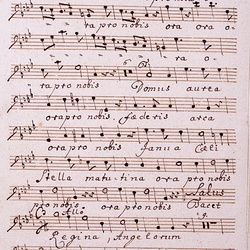 ra pro nobis ora ora o-
ra o-
ra pro nobis Domus aurea
ora pro nobis. foederis arca
ora pro nobis Janua Cœli
Stella matutina ora pro nobis
ora pro nobis
Regina, Angelorum